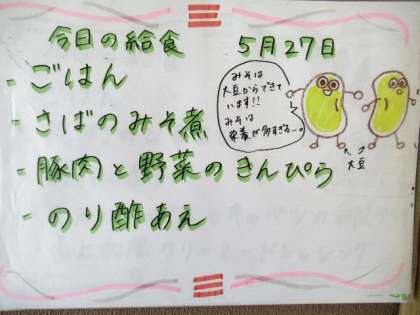 今日の給食　5月27日
- ごはん
- さばのみそ煮
- 豚肉と野菜のきんぴら
- のり酢あえ
みそは
大豆からできて
います!!
みそは
栄養が多すぎる…。
大豆